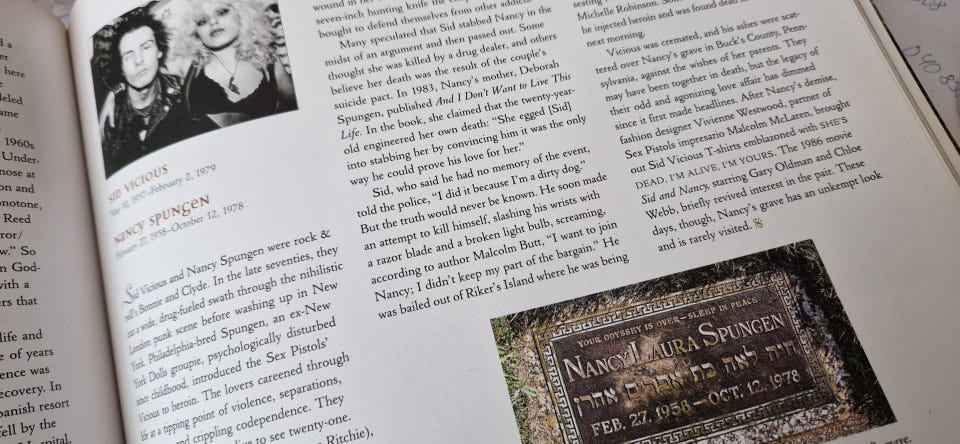 d a
r here
deled
ame
1960s
Under-
nose at
on and
onotone,
Reed
rror/
w." So
n God-
with a
ers that
life and
e of years
ence was
ecovery. In
panish resort
fell by the
SID VICIOUS
May 10, 1957–February 2, 1979
NANCY SPUNGEN
February 27, 1958–October 12, 1978
Sid Vicious and Nancy Spungen were rock &
roll's Bonnie and Clyde. In the late seventies, they
cut a wide, drug-fueled swath through the nihilistic
London punk scene before washing up in New
York. Philadelphia-bred Spungen, an ex-New
York Dolls groupie, psychologically disturbed
since childhood, introduced the Sex Pistols'
Vicious to heroin. The lovers careened through
life at a tipping point of violence, separations,
and crippling codependence. They
live to see twenty-one.
Ritchie),
wound in her
seven-inch hunting knife the
bought to defend themselves from other addicts.
Many speculated that Sid stabbed Nancy in the
midst of an argument and then passed out. Some
thought she was killed by a drug dealer, and others
believe her death was the result of the couple's
suicide pact. In 1983, Nancy's mother, Deborah
Spungen, published And I Don't Want to Live This
Life. In the book, she claimed that the twenty-year-
old engineered her own death: "She egged [Sid]
into stabbing her by convincing him it was the only
way he could prove his love for her."
Sid, who said he had no memory of the event,
told the police, "I did it because I'm a dirty dog."
But the truth would never be known. He soon made
an attempt to kill himself, slashing his wrists with
a razor blade and a broken light bulb, screaming,
according to author Malcolm Butt, "I want to join
Nancy; I didn't keep my part of the bargain." He
was bailed out of Riker's Island where he was being
Michelle Robinson.
he injected heroin and was found dead
next morning.
Vicious was cremated, and his ashes were scat-
tered over Nancy's grave in Buck's County, Penn-
sylvania, against the wishes of her parents. They
may have been together in death, but the legacy of
their odd and agonizing love affair has dimmed
since it first made headlines. After Nancy's demise,
fashion designer Vivienne Westwood, partner of
Sex Pistols impresario Malcolm McLaren, brought
out Sid Vicious T-shirts emblazoned with SHE'S
DEAD, I'M ALIVE, I'M YOURS. The 1986 movie
Sid and Nancy, starring Gary Oldman and Chloe
Webb, briefly revived interest in the pair. These
days, though, Nancy's grave has an unkempt look
and is rarely visited.
YOUR ODYSSEY IS OVER–SLEEP IN PEACE
NANCY LAURA SPUNGEN
חיה לאה בת אברהם אהרן
FEB. 27, 1958–OCT. 12, 1978